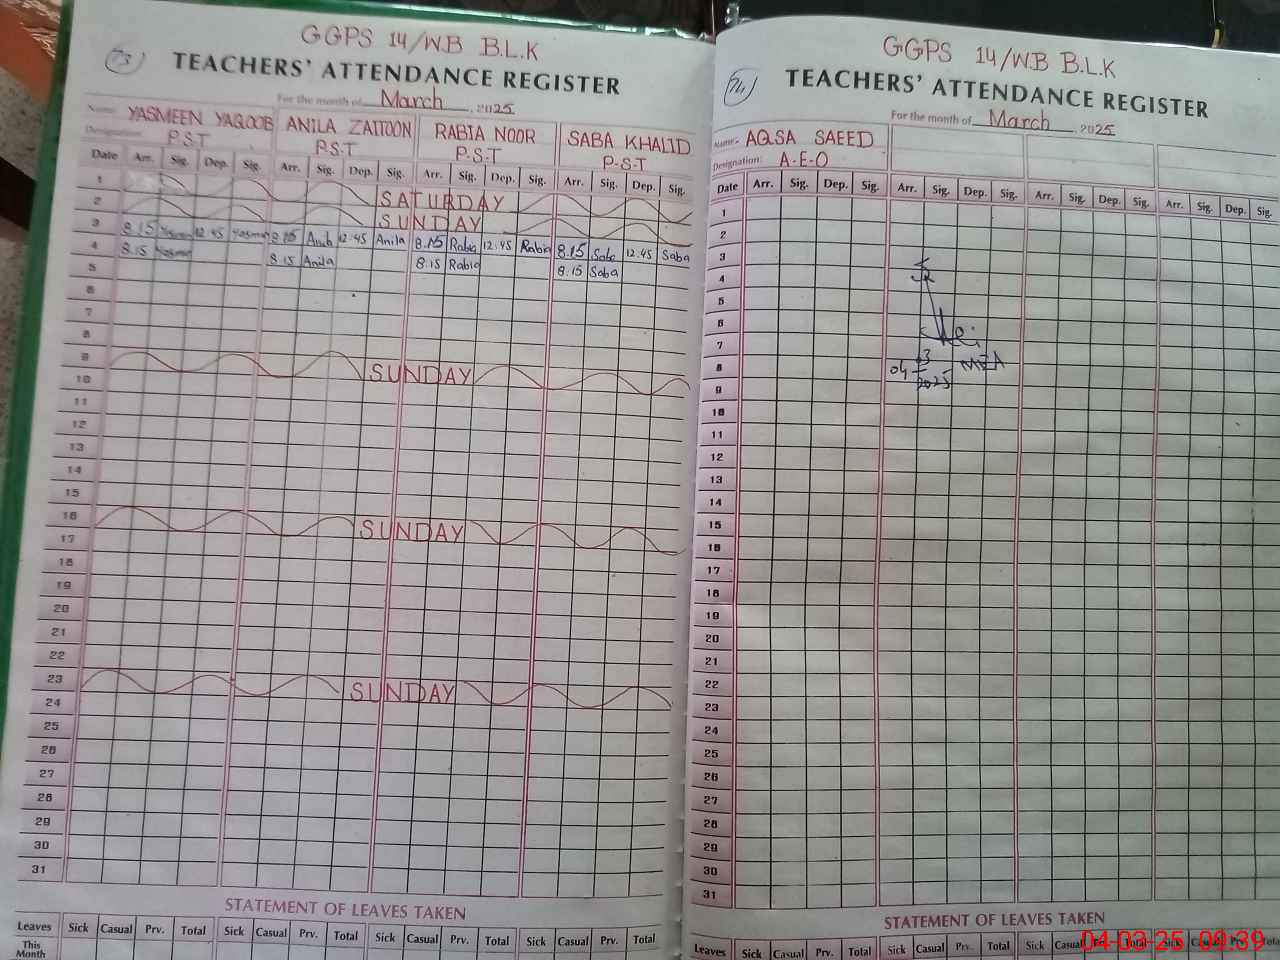 73
GGPS 14/WB B.L.K
TEACHERS' ATTENDANCE REGISTER
For the month of March, 2025
Name: YASMEEN YAQOOB ANILA ZAITOON RABIA NOOR SABA KHALID
Designation: P.S.T P.S.T P-S-T P-S-T
Date Arr. Sig. Dep. Sig. Arr. Sig. Dep. Sig. Arr. Sig. Dep. Sig. Arr. Sig. Dep. Sig.
1 SATURDAY
2 SUNDAY
3 8.15 Yasmeen 12.45 Yasmeen 8.15 Anila 12.45 Anila 8.15 Rabia 12.45 Rabia 8.15 Saba 12.45 Saba
4 8.15 Yasmeen 8.15 Anila 8.15 Rabia 8.15 Saba
5
6
7
8
9 SUNDAY
10
11
12
13
14
15
16 SUNDAY
17
18
19
20
21
22
23 SUNDAY
24
25
26
27
28
29
30
31
STATEMENT OF LEAVES TAKEN
Leaves Sick Casual Prv. Total Sick Casual Prv. Total Sick Casual Prv. Total Sick Casual Prv. Total
This Month
74
GGPS 14/WB B.L.K
TEACHERS' ATTENDANCE REGISTER
For the month of March, 2025
Name: AQSA SAEED
Designation: A-E-O
Date Arr. Sig. Dep. Sig. Arr. Sig. Dep. Sig. Arr. Sig. Dep. Sig. Arr. Sig. Dep. Sig.
1
2
3
4
5
6
7
8 04 03 2025 MEA
9
10
11
12
13
14
15
16
17
18
19
20
21
22
23
24
25
26
27
28
29
30
31
STATEMENT OF LEAVES TAKEN
Leaves Sick Casual Prv. Total Sick Casual Prv. Total Sick Casual Total Sick
04-03-25 09:39